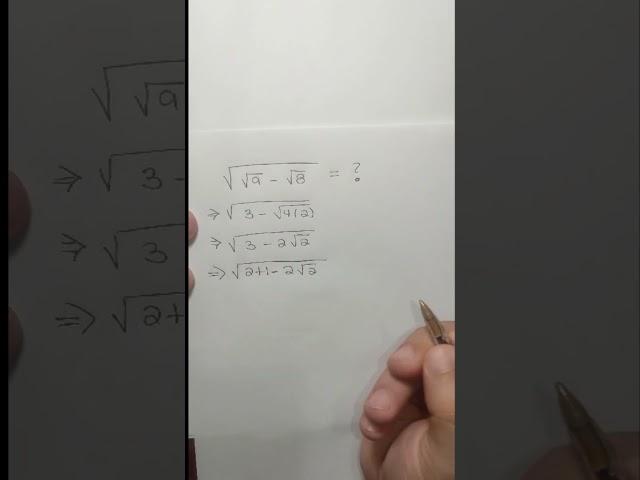 √(√9 - √8) = ?
⇒ √(3 - √4(2))
⇒ √(3 - 2√2)
⇒ √(2+1 - 2√2)